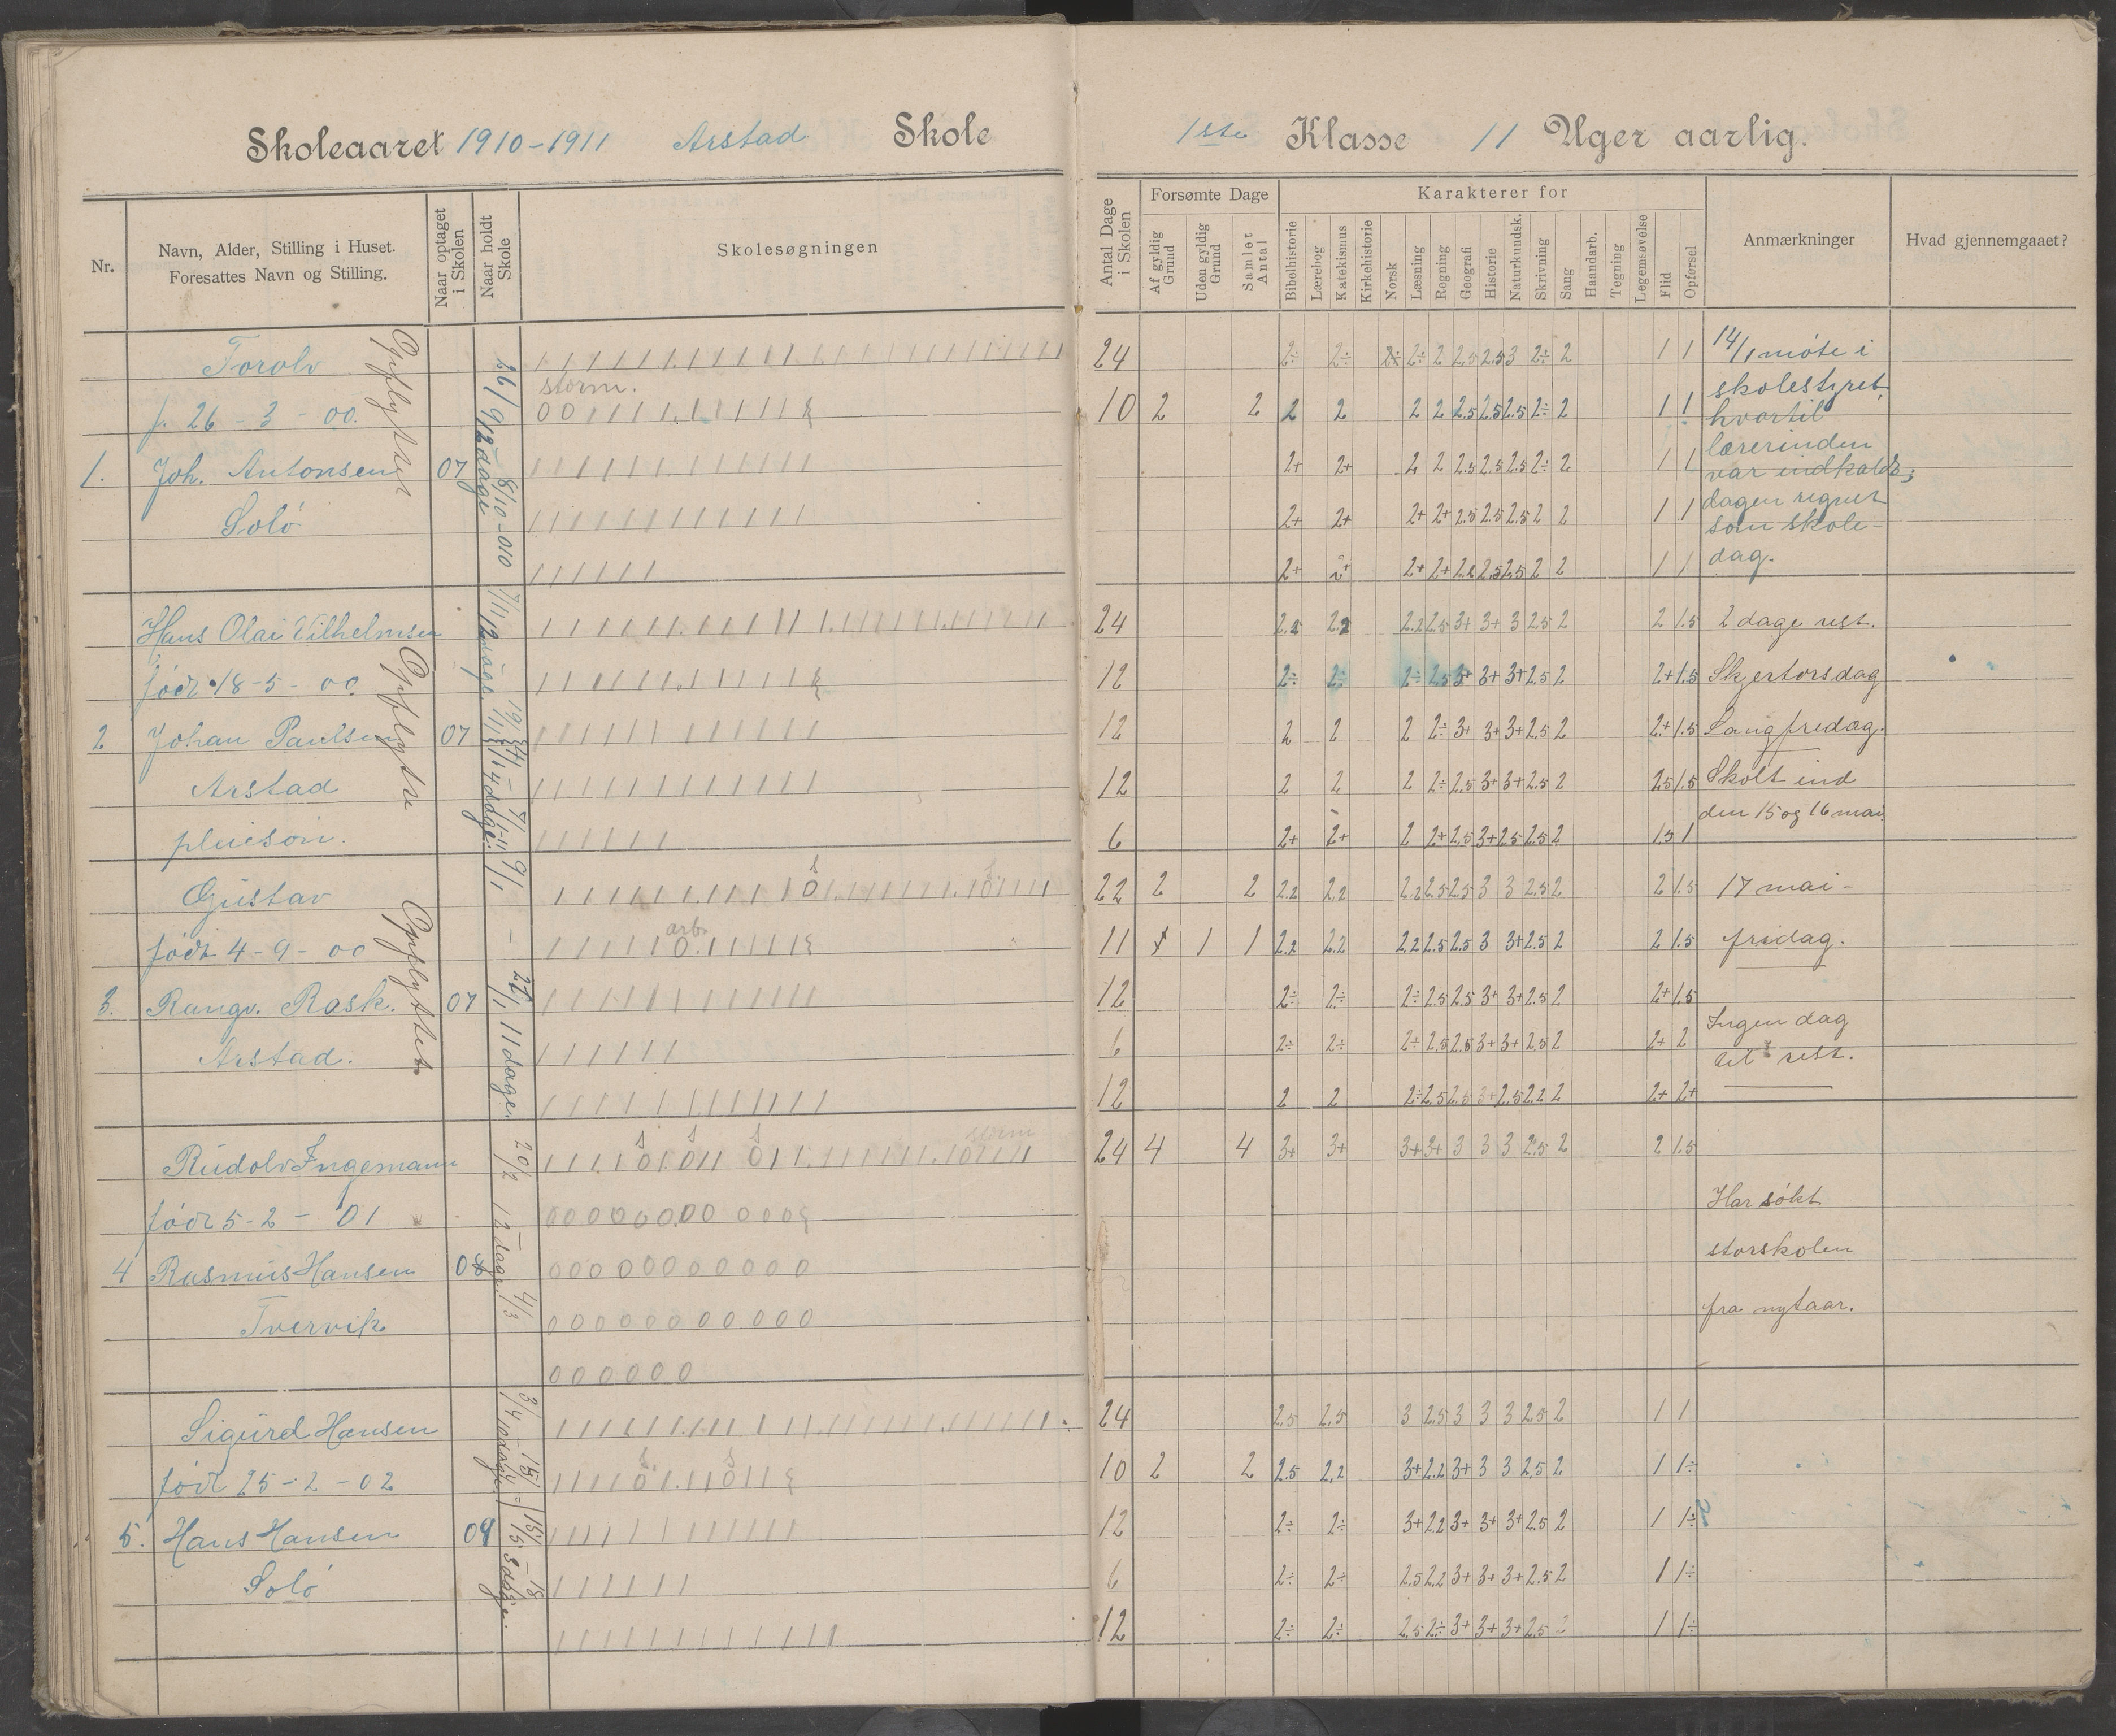 Skoleaaret 1910-1911 Arstad Skole
1ste Klasse 11 Uger aarlig.
Nr.
Navn, Alder, Stilling i Huset.
Foresattes Navn og Stilling.
Naar optaget i Skolen
Naar holdt Skole
Skolesøgningen
Antal Dage i Skolen
Forsømte Dage
Af gyldig Grund
Uden gyldig Grund
Samlet Antal
Karakterer for
Bibelhistorie
Lærebog
Katekismus
Kirkehistorie
Norsk
Læsning
Regning
Geografi
Historie
Naturkundsk.
Skrivning
Sang
Haandarb.
Tegning
Legemsøvelse
Flid
Opførsel
Anmærkninger
Hvad gjennemgaaet?
Torolv
f. 26-3-00.
1. Joh. Antonsen 07
Solö
Opflyttet
storm.
24 2÷ 2÷ 2÷ 2 2.5 2.5 3 2÷ 2 1 1
10 2 2 2 2 2 2 2.5 2.5 2.5 2÷ 2 1 1
2+ 2+ 2 2 2.5 2.5 2.5 2÷ 2 1 1
2+ 2+ 2+ 2+ 2.5 2.5 2.5 2 2 1 1
2+ 2+ 2+ 2.5 2.5 2 2 1 1
14/1 møte i
skolestyret,
hvortil
lærerinden
var indkaldt;
dagen regnet
som skole-
dag.
Hans Olai Vilhelmsen
født 18-5-00
2 Johan Paulsen 07
Arstad
pleiesön.
24 2.2 2.2 2.2 2.5 3+ 3+ 3 2.5 2 2 1.5
12 2÷ 2÷ 2÷ 2.5 3+ 3+ 3+ 2.5 2 2+ 1.5
12 2 2 2 2÷ 3+ 3+ 3+ 2.5 2 2+ 1.5
12 2 2 2 2÷ 2.5 3+ 3+ 2.5 2 2.5 1.5
6 2+ 2+ 2 2+ 2.5 3+ 2.5 2.5 2 1.5 1
2 dage rest.
Skjertorsdag
Langfredag.
Skolt ind
den 15 og 16 mai
Gustav
født 4-9-00
3. Rangv. Rask. 07
Arstad.
Opflyttet
s
arb.
22 2 2 2.2 2.2 2.2 2.5 2.5 3 3 2.5 2 2 1.5
11 1 1 2.2 2.2 2.2 2.5 2.5 3 3+ 2.5 2 2 1.5
12 2÷ 2÷ 2÷ 2.5 2.5 3+ 3+ 2.5 2 2+ 1.5
6 2÷ 2÷ 2÷ 2.5 2.5 3+ 3+ 2.5 2 2+ 2
12 2 2 2÷ 2.5 2.5 3+ 2.5 2.2 2 2+ 2+
17 mai-
fridag.
Ingen dag
til rest.
Rudolv Ingemann
født 5-2-01
4 Rasmus Hansen
Tvervik
s s s storm
24 4 4 3+ 3+ 3+ 3+ 3 3 3 2.5 2 2 1.5
000 0000 0000
00000000000
00000000000
000000
Har søkt
storskolen
fra nytaar.
Sigurd Hansen
født 25-2-02
5. Hans Hansen 09
Solö
s s
24 2.5 2.5 3 2.5 3 3 3 2.5 2 1 1
10 2 2 2.5 2.2 3+ 2.2 3+ 3 3 2.5 2 1 1÷
12 2÷ 2÷ 3+ 2.2 3+ 3+ 3+ 2.5 2 1 1÷
6 2÷ 2÷ 2.5 2.2 3+ 3+ 3+ 2.5 2 1 1÷
12 2÷ 2÷ 2.5 2÷ 3+ 3+ 3+ 2.5 2 1 1÷